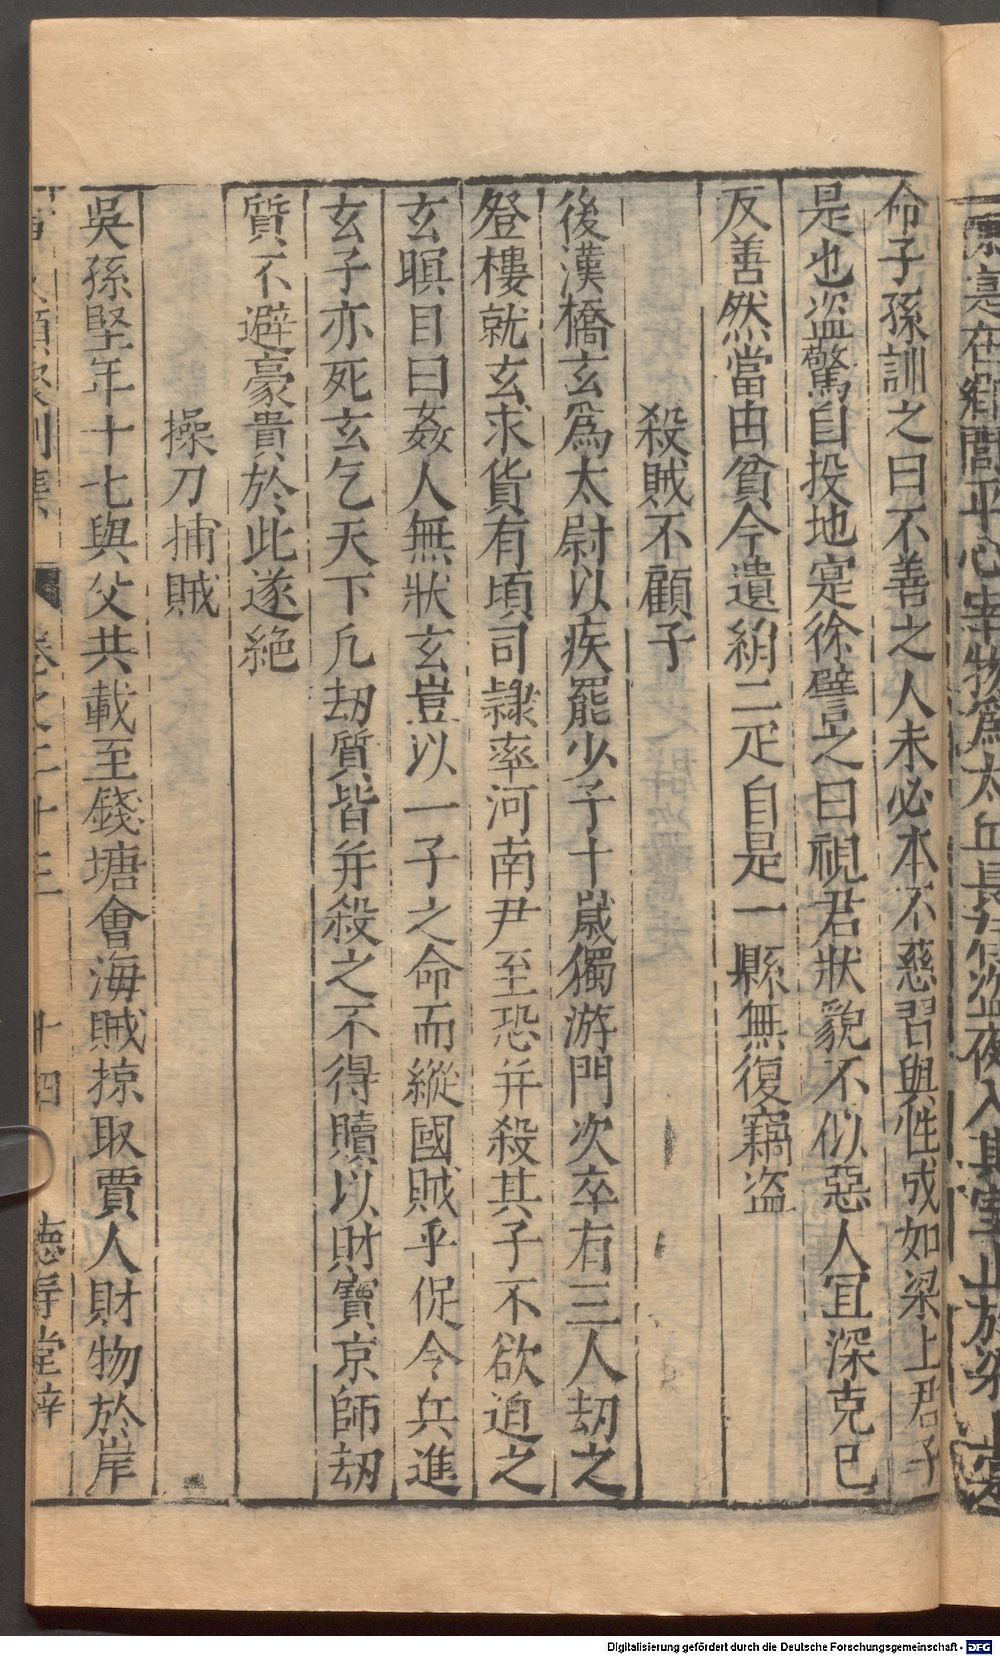 寔在鄉閭平心率物爲太丘長有盜夜入其室止於梁上寔
命子孫訓之曰不善之人未必本不慈習與性成如梁上君子
是也盜驚自投地寔徐譬之曰視君狀貌不似惡人宜深克己
反善然當由貧今遺絹二疋自是一縣無復竊盜
殺賊不顧子
後漢橋玄爲太尉以疾罷少子十歲獨游門次卒有三人劫之
登樓就玄求貨有頃司隸率河南尹至恐并殺其子不欲迫之
玄瞋目曰姦人無狀玄豈以一子之命而縱國賊乎促令兵進
玄子亦死玄乞天下凡劫質皆并殺之不得贖以財寶京師劫
質不避豪貴於此遂絕
操刀捕賊
吳孫堅年十七與父共載至錢塘會海賊掠取賈人財物於岸
卷之二十三 十四 德壽堂梓
Digitalisierung gefördert durch die Deutsche Forschungsgemeinschaft - DFG